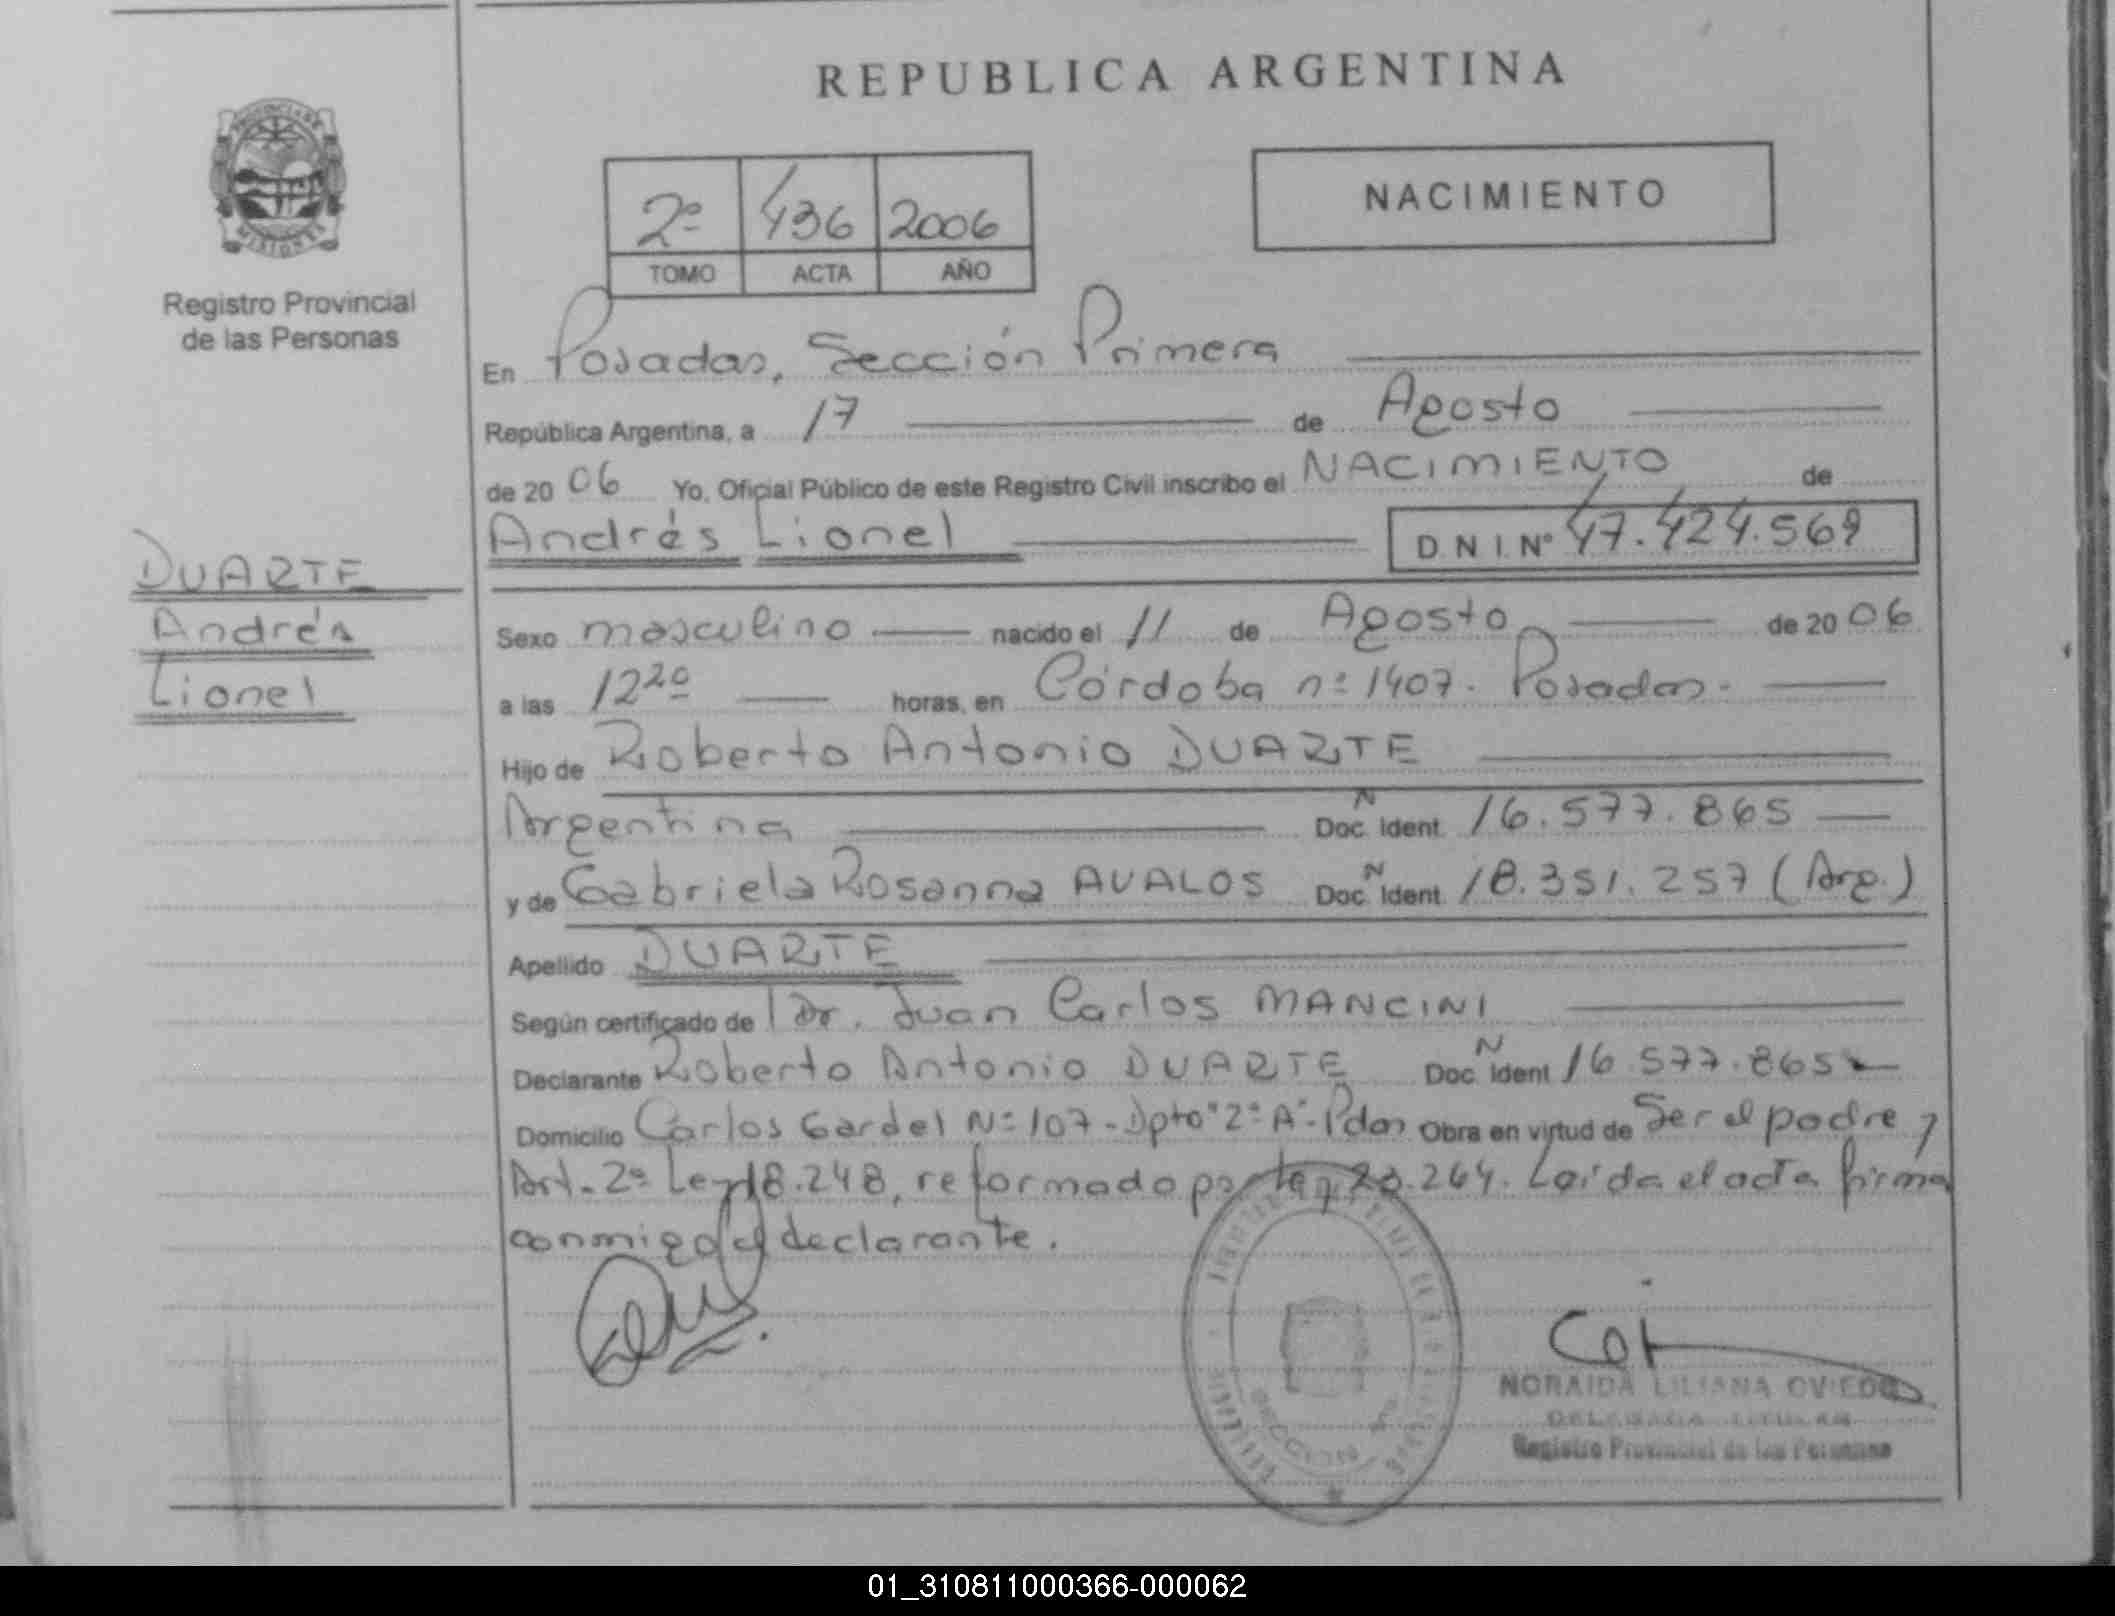 REPUBLICA ARGENTINA
PROVINCIA DE
MISIONES
Registro Provincial
de las Personas
2º 436 2006
TOMO ACTA AÑO
NACIMIENTO
En Posadas, Sección Primera
República Argentina, a 17 de Agosto
de 2006 Yo, Oficial Público de este Registro Civil inscribo el NACIMIENTO de
Andrés Lionel D.N.I. Nº 47.424.569
DUARTE
Andrés
Lionel
Sexo masculino nacido el 11 de Agosto de 2006
a las 12 20 horas, en Córdoba nº 1407. Posadas.
Hijo de Roberto Antonio DUARTE
Argentina Doc. N Ident. 16.577.865
y de Gabriela Rosanna AVALOS Doc. N Ident. 18.351.257 (Arg.)
Apellido DUARTE
Según certificado de Dr. Juan Carlos MANCINI
Declarante Roberto Antonio DUARTE Doc. N Ident 16.577.865
Domicilio Carlos Gardel Nº 107 - Dpto "2º A" - Pdas Obra en virtud de Ser el padre y
Art. 2º Ley 18.248, reformado por Ley 23.264. Leída el acta firma
conmigo el declarante.
NORAIDA LILIANA OVIEDO
DELEGADA TITULAR
Registro Provincial de las Personas
01_310811000366-000062